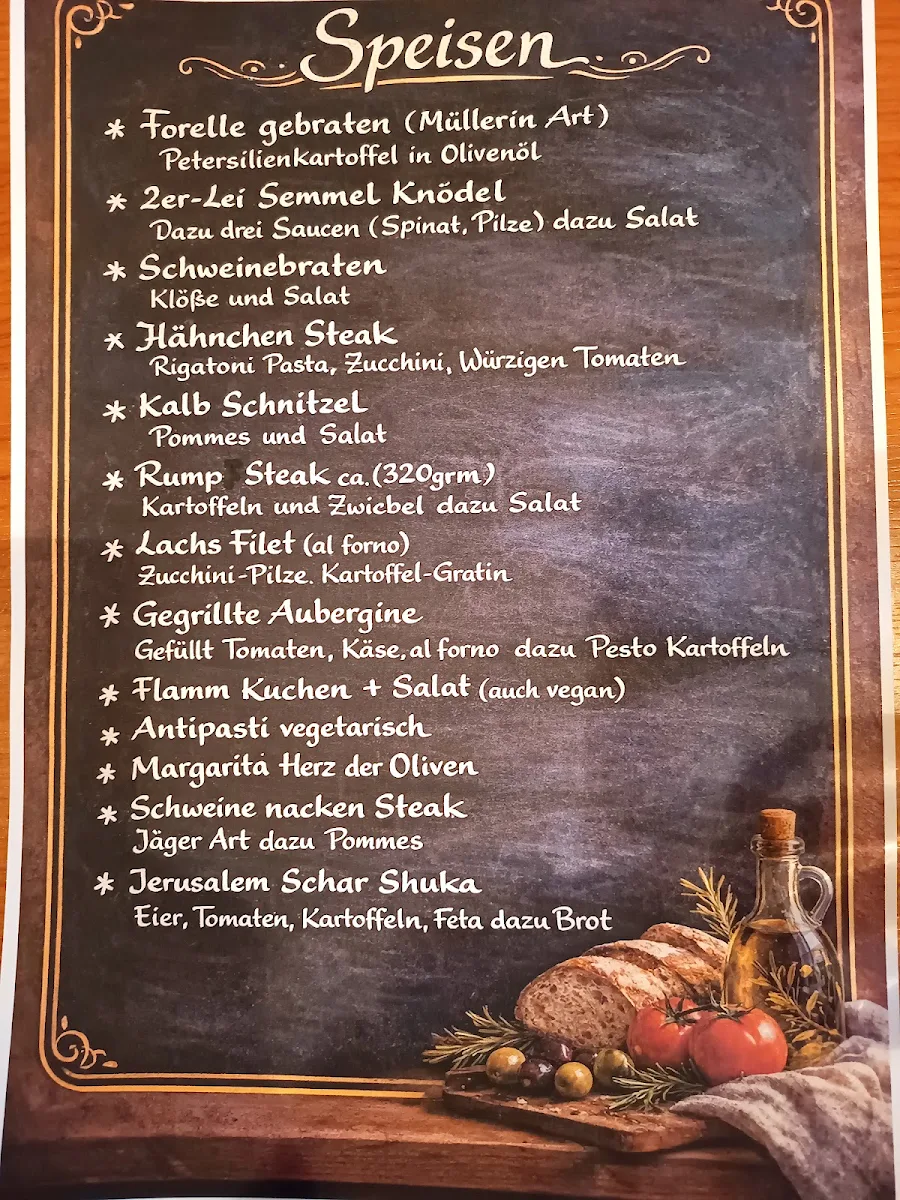 Speisen
* Forelle gebraten (Müllerin Art)
Petersilienkartoffel in Olivenöl
* 2er-Lei Semmel Knödel
Dazu drei Saucen (Spinat, Pilze) dazu Salat
* Schweinebraten
Klöße und Salat
* Hähnchen Steak
Rigatoni Pasta, Zucchini, Würzigen Tomaten
* Kalb Schnitzel
Pommes und Salat
* Rump Steak ca.(320grm)
Kartoffeln und Zwiebel dazu Salat
* Lachs Filet (al forno)
Zucchini-Pilze. Kartoffel-Gratin
* Gegrillte Aubergine
Gefüllt Tomaten, Käse, al forno dazu Pesto Kartoffeln
* Flamm Kuchen + Salat (auch vegan)
* Antipasti vegetarisch
* Margarita Herz der Oliven
* Schweine nacken Steak
Jäger Art dazu Pommes
* Jerusalem Schar Shuka
Eier, Tomaten, Kartoffeln, Feta dazu Brot